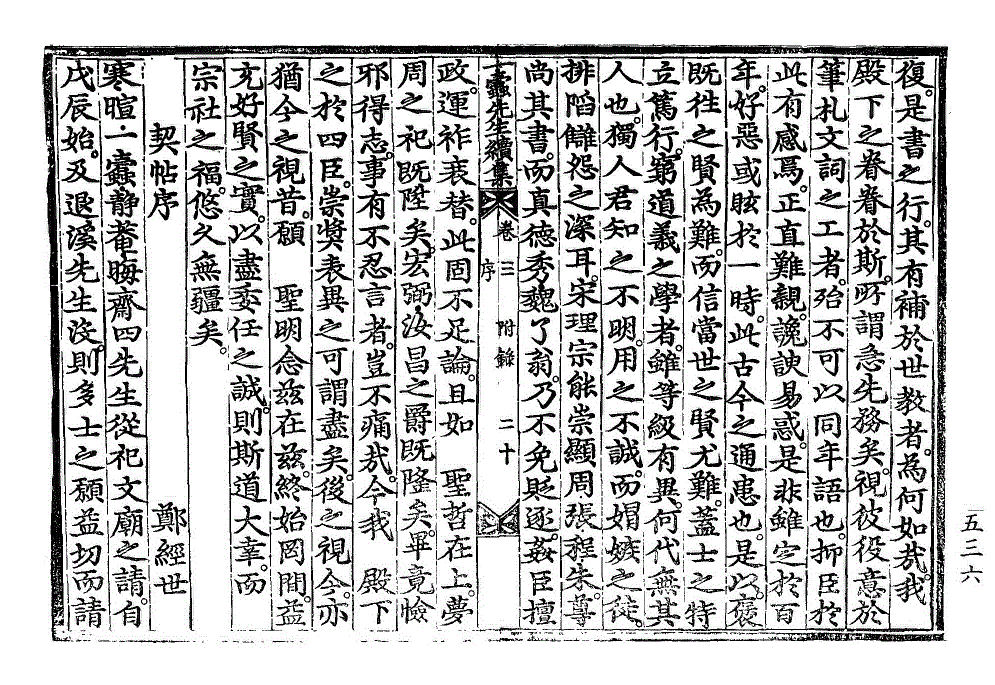 復。是書之行。其有補於世教者。爲何如哉。我
殿下之眷眷於斯。所謂急先務矣。視彼役意於
筆札文詞之工者。殆不可以同年語也。抑臣於
此有感焉。正直難親。讒諛易惑。是非雖定於百
年。好惡或眩於一時。此古今之通患也。是以。褒
既往之賢爲難。而信當世之賢尤難。蓋士之特
立篤行。窮道義之學者。雖等級有異。何代無其
人也。獨人君知之不明。用之不誠。而媢嫉之徒。
排陷讎怨之深耳。宋理宗能崇顯周張程朱。尊
尚其書。而眞德秀魏了翁。乃不免貶逐。姦臣擅
一蠹先生續集 卷三 附錄 序 二十
政。運祚衰替。此固不足論。且如 聖哲在上。夢
周之祀既陞矣。宏弼,汝昌之爵既隆矣。畢竟憸
邪得志。事有不忍言者。豈不痛哉。今我 殿下
之於四臣。崇奬表異之可謂盡矣。後之視今。亦
猶今之視昔。願 聖明念茲在茲。終始罔間。益
充好賢之實。以盡委任之誠。則斯道大幸。而
宗社之福。悠久無疆矣。
契帖序 鄭經世
寒暄,一蠹,靜菴,晦齋四先生從祀文廟之請。自
戊辰始。及退溪先生沒。則多士之願益切。而請
五三六